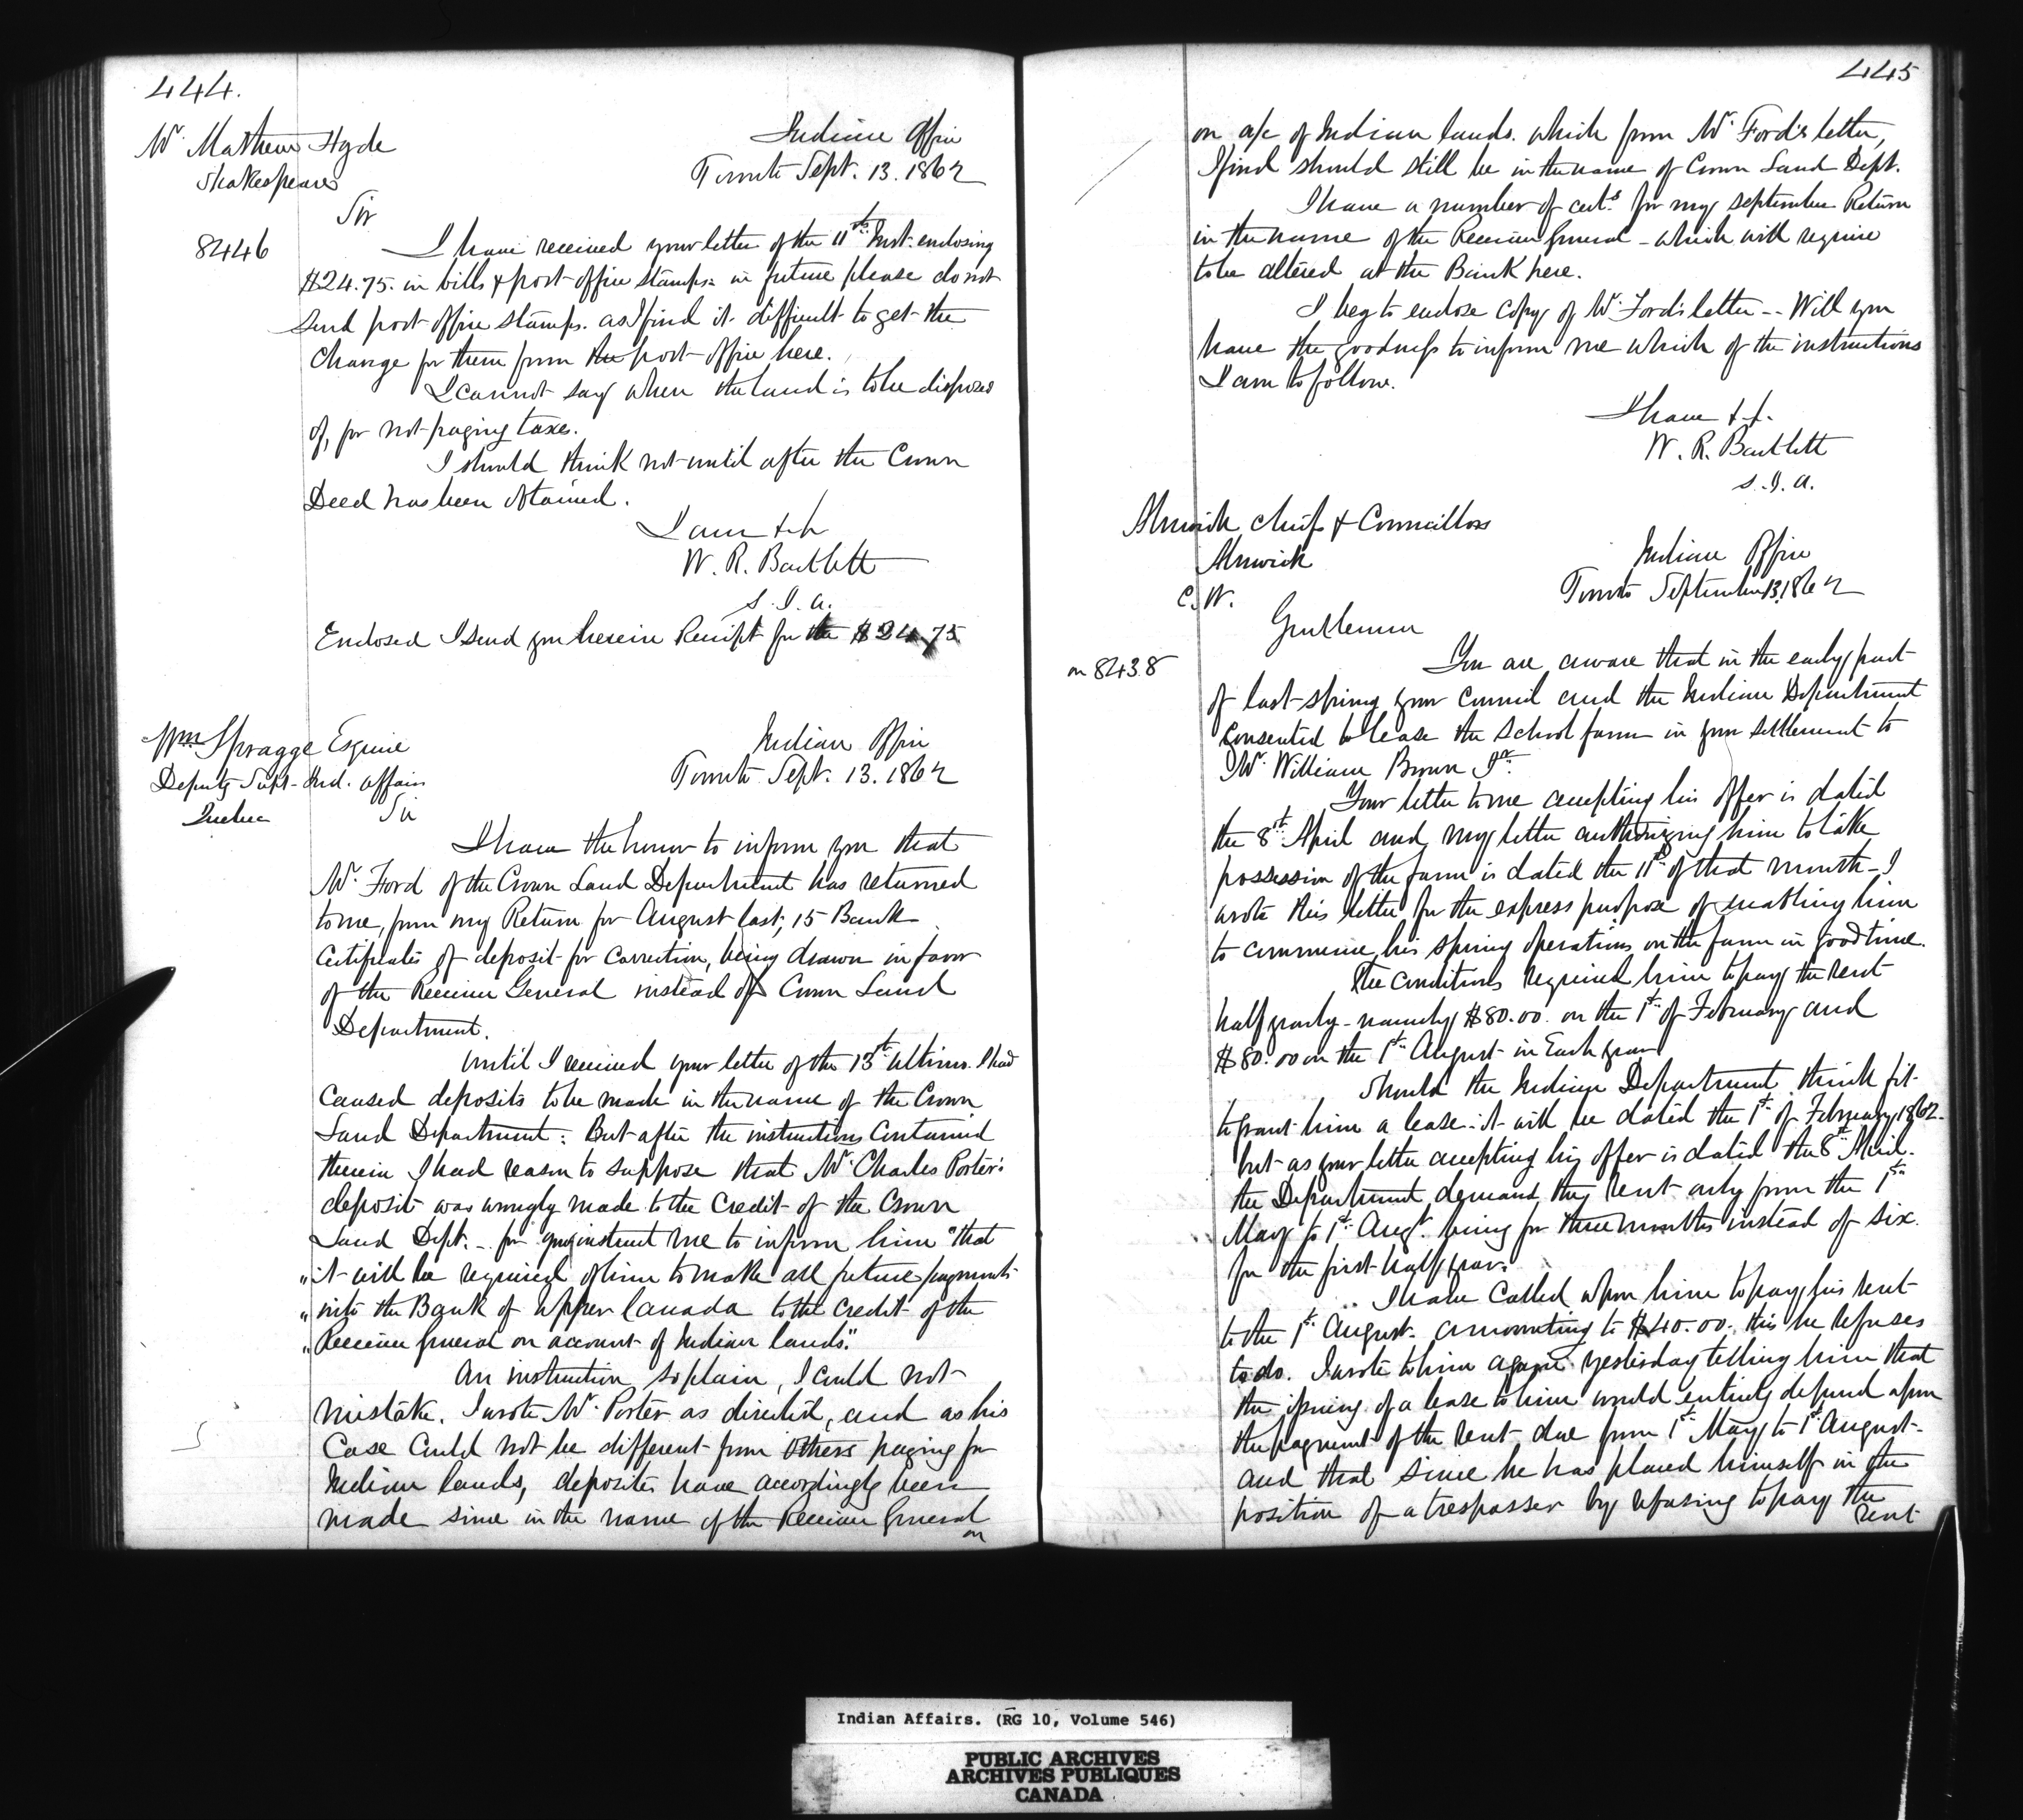 444.
Mr. Mathew Hyde
Shakespeare
Indian Office
Toronto Sept. 13. 1862
Sir
8446
I have received your letter of the 11th Inst. enclosing
$24.75. in bills & post office stamps. in future please do not
send post office stamps. as I find it difficult to get the
Change for them from the post office here.
I cannot say when the land is to be disposed
of, for not paying taxes.
I should think not until after the Crown
Deed has been obtained.
I am &c
W. R. Bartlett
S. I. A.
Enclosed I send you herein Receipt for the $24.75
Wm Spragge Esquire
Deputy Supt. Ind. Affairs
Quebec
Indian Office
Toronto Sept. 13. 1862
Sir
I have the honor to inform you that
Mr. Ford of the Crown Land Department has returned
to me, from my Return for August last, 15 Bank
Certificates of deposit for correction, being drawn in favor
of the Receiver General instead of Crown Land
Department.
Until I received your letter of the 13th Ultimo. I had
Caused deposits to be made in the name of the Crown
Land Department: But after the instructions Contained
therein I had reason to suppose that Mr. Charles Porter's
deposit was wrongly made to the Credit of the Crown
Land Dept. - for you instruct me to inform him "that
"it will be required of him to make all future payments
"into the Bank of Upper Canada to the credit of the
"Receiver General on account of Indian lands."
An instruction so plain, I could not
mistake. I wrote Mr. Porter as directed, and as his
Case Could not be different from others paying for
Indian lands, deposits have accordingly been
made since in the name of the Receiver General
on
445
on a/c of Indian lands. which from Mr. Ford's letter,
I find should still be in the name of Crown Land Dept.
I have a number of certs. for my September Return
in the name of the Receiver General - which will require
to be altered at the Bank here.
I beg to enclose Copy of Mr. Ford's letter -- Will you
have the goodness to inform me which of the instructions
I am to follow.
I have &c.
W. R. Bartlett
S. I. A.
Alnwick Chief & Councillors
Alnwick
C. W.
Indian Office
Toronto September 13, 1862
Gentlemen
on 8438
You are aware that in the early part
of last spring your Council and the Indian Department
Consented to lease the School farm in your settlement to
Mr. William Brown Jr.
Your letter to me accepting his offer is dated
the 8th April and my letter authorizing him to take
possession of the farm is dated the 11th of that month - I
wrote this letter for the express purpose of enabling him
to commence his spring operations on the farm in good time.
The Conditions required him to pay the rent
half yearly - namely $80.00. on the 1st of February and
$80.00 on the 1st August in Each year
Should the Indian Department think fit
to grant him a lease it will be dated the 1st of February 1862.
but as your letter accepting his offer is dated the 8th April.
the Department demand the rent only from the 1st
May to 1st Augt. being for three months instead of six.
for the first half year.
I have Called upon him to pay his rent
to the 1st August. amounting to $40.00. this he refuses
to do. I wrote to him again yesterday telling him that
the issuing of a lease to him would entirely depend upon
the payment of the rent due from 1st May to 1st August.
and that since he has placed himself in the
position of a trespasser by refusing to pay the
rent
Indian Affairs. (RG 10, Volume 546)
PUBLIC ARCHIVES
ARCHIVES PUBLIQUES
CANADA